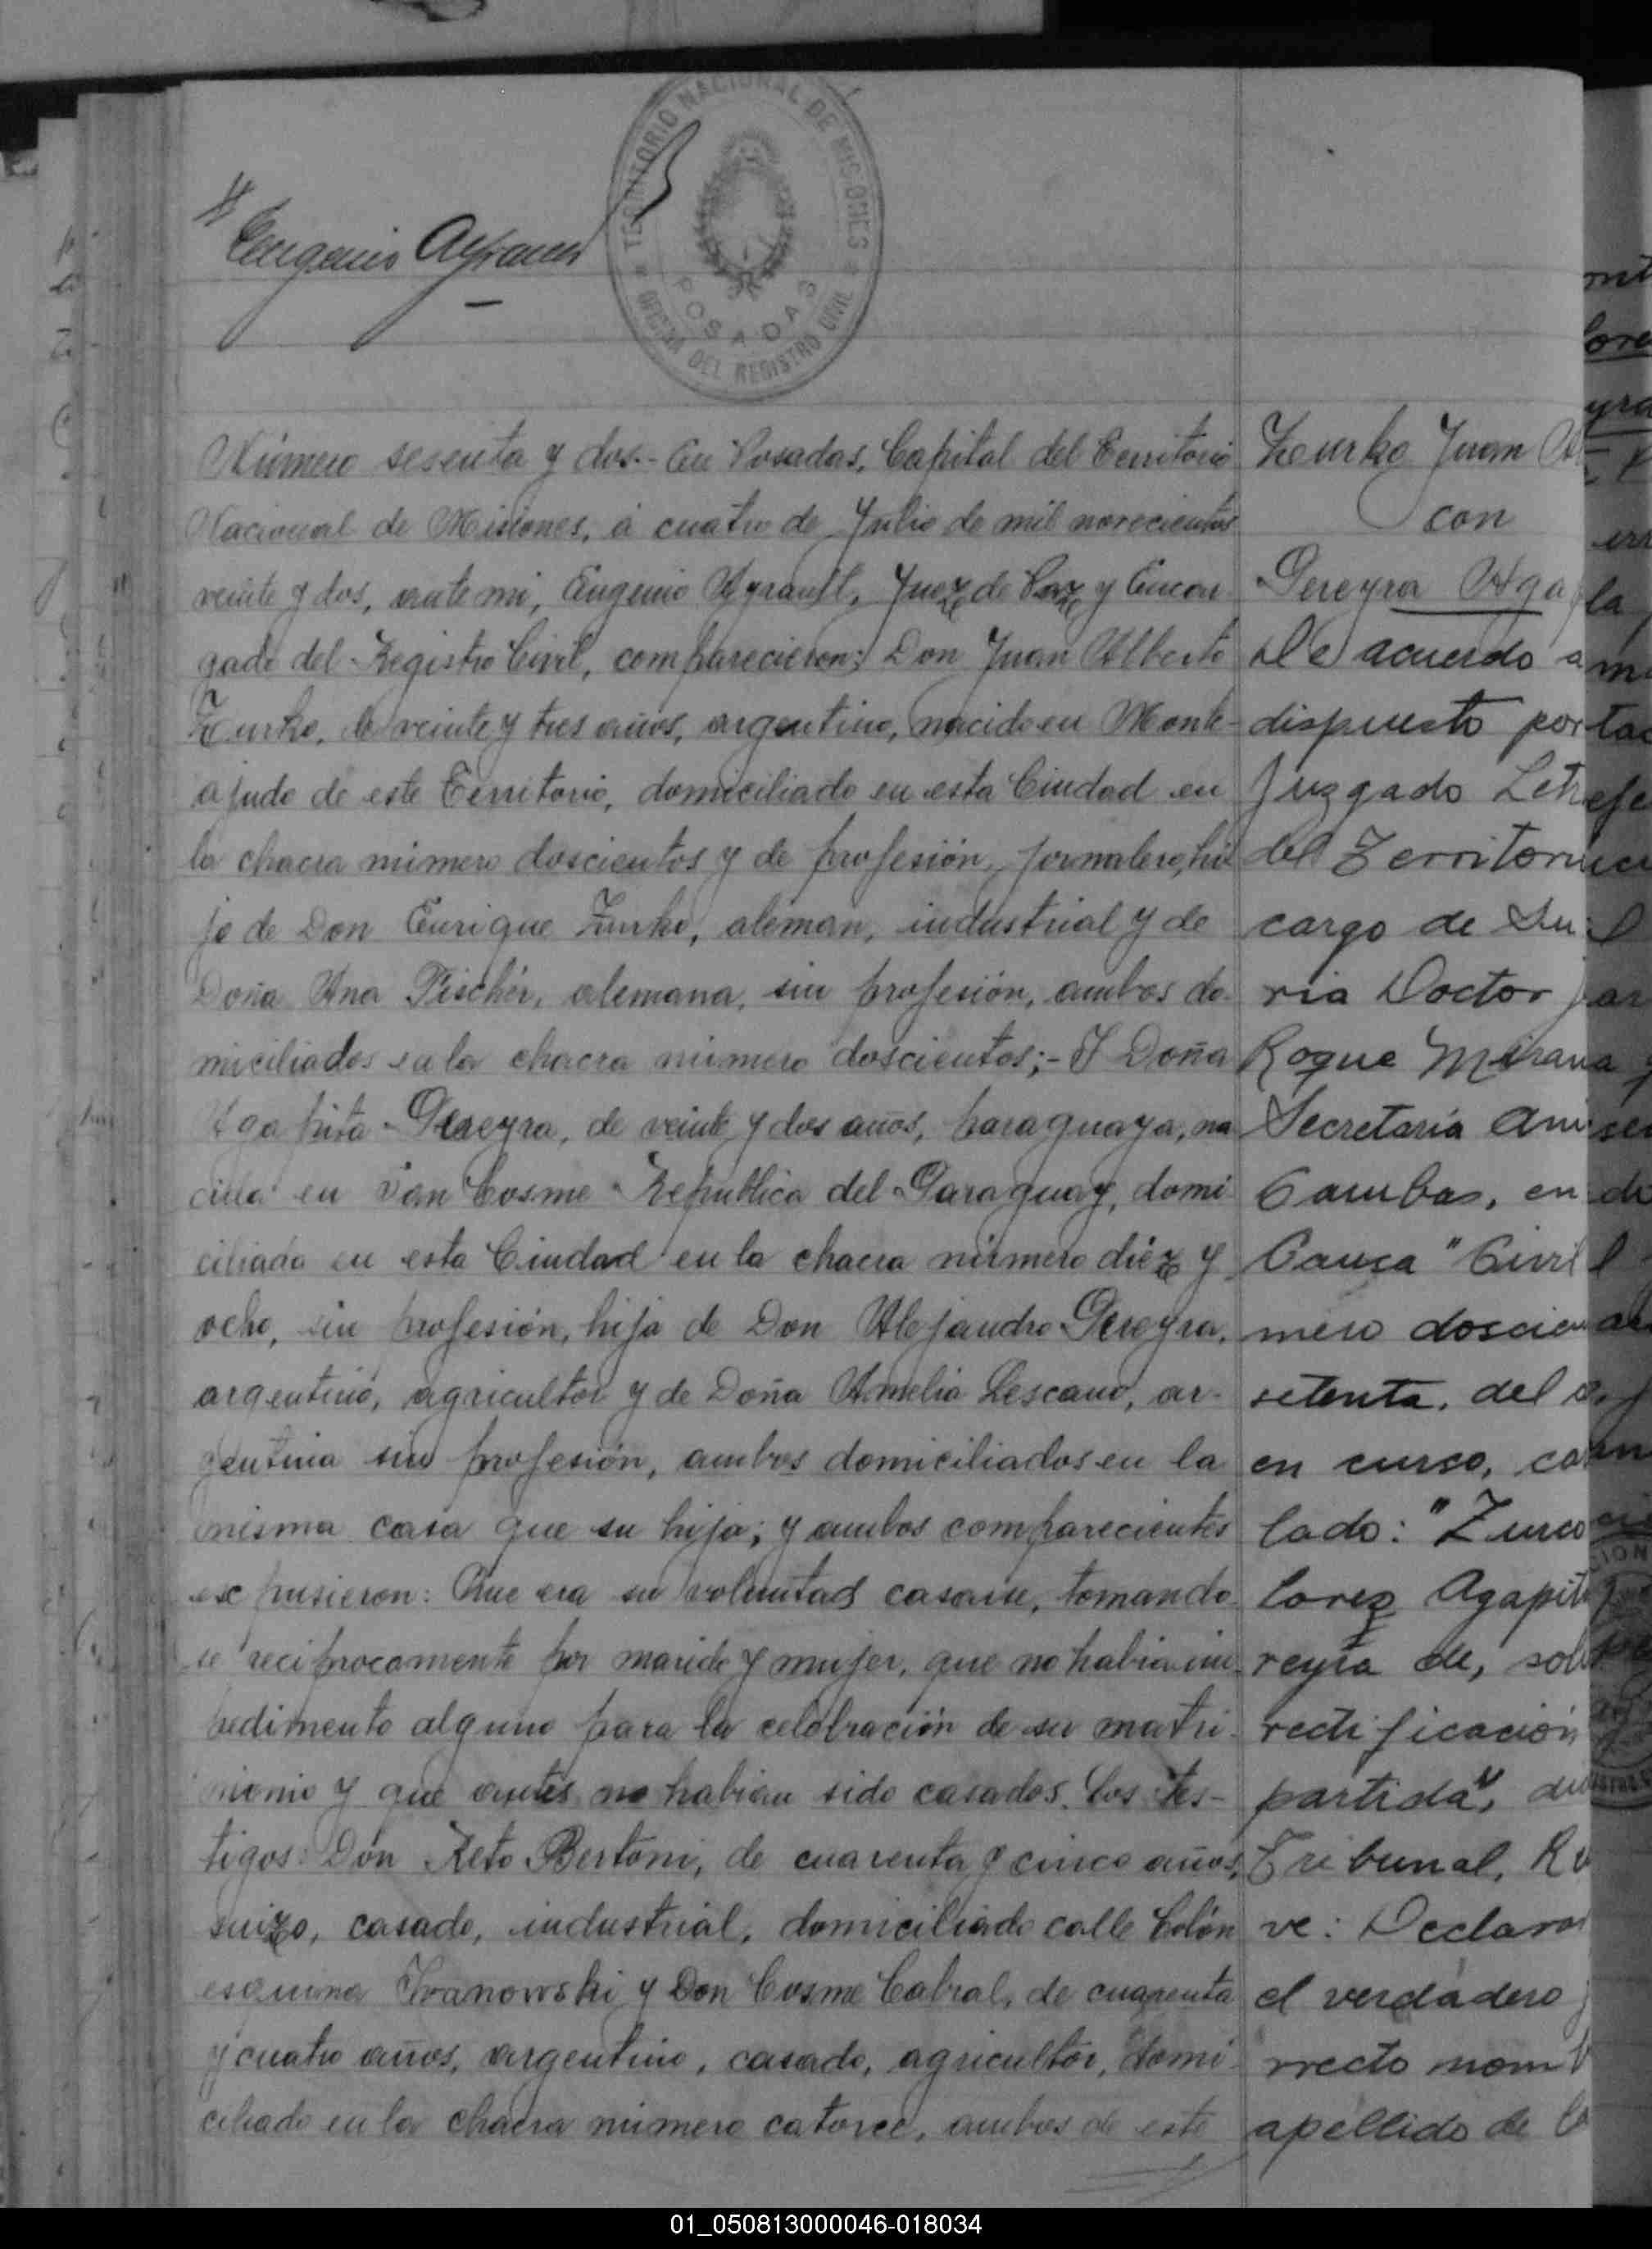 TERRITORIO NACIONAL DE MISIONES
POSADAS
OFICINA DEL REGISTRO CIVIL
Eugenio Ayrault
Número sesenta y dos.- En Posadas, Capital del Territorio
Nacional de Misiones, á cuatro de Julio de mil novecientos
veinte y dos, ante mi, Eugenio Ayrault, Juez de Paz y Encar-
gado del Registro Civil, comparecieron: Don Juan Alberto
Zurko, de veinte y tres años, argentino, nacido en Monte-
agudo de este Territorio, domiciliado en esta Ciudad en
la chacra número doscientos y de profesión jornalero, hi-
jo de Don Enrique Zurko, aleman, industrial y de
Doña Ana Fischer, alemana, sin profesión, ambos do-
miciliados en la chacra número doscientos;- Y Doña
Agapita Pereyra, de veinte y dos años, paraguaya, na
cida en San Cosme República del Paraguay, domi
ciliada en esta Ciudad en la chacra número diéz y
ocho, sin profesión, hija de Don Alejandro Pereyra,
argentino, agricultor y de Doña Amelia Lescano, ar-
gentina sin profesión, ambos domiciliados en la
misma casa que su hija; y ambos comparecientes
expusieron: Que era su voluntad casarse, tomando
se reciprocamente por marido y mujer, que no habia im-
pedimento alguno para la celebración de su matri-
monio y que antes no habian sido casados. Los tes-
tigos: Don Reto Bertoni, de cuarenta y cinco años,
suizo, casado, industrial, domiciliado calle Colón
esquina Ivanowski y Don Cosme Cabral, de cuarenta
y cuatro años, argentino, casado, agricultor, domi-
ciliado en la chacra número catorce, ambos de este
Zurko Juan
con
Pereyra Aga
De acuerdo a
dispuesto por
Juzgado Let
del Territori
cargo de Su
ria Doctor
Roque Miran
Secretaría
Cambas, en
Causa "Civil
mero doscien
setenta, del
en curso, ca
lado: "Zurco
lores Agapit
reyra de, sol
rectificación
partida", du
Tribunal, R
ve: Declaro
el verdadero
rrecto nom
apellido de
01_050813000046-018034